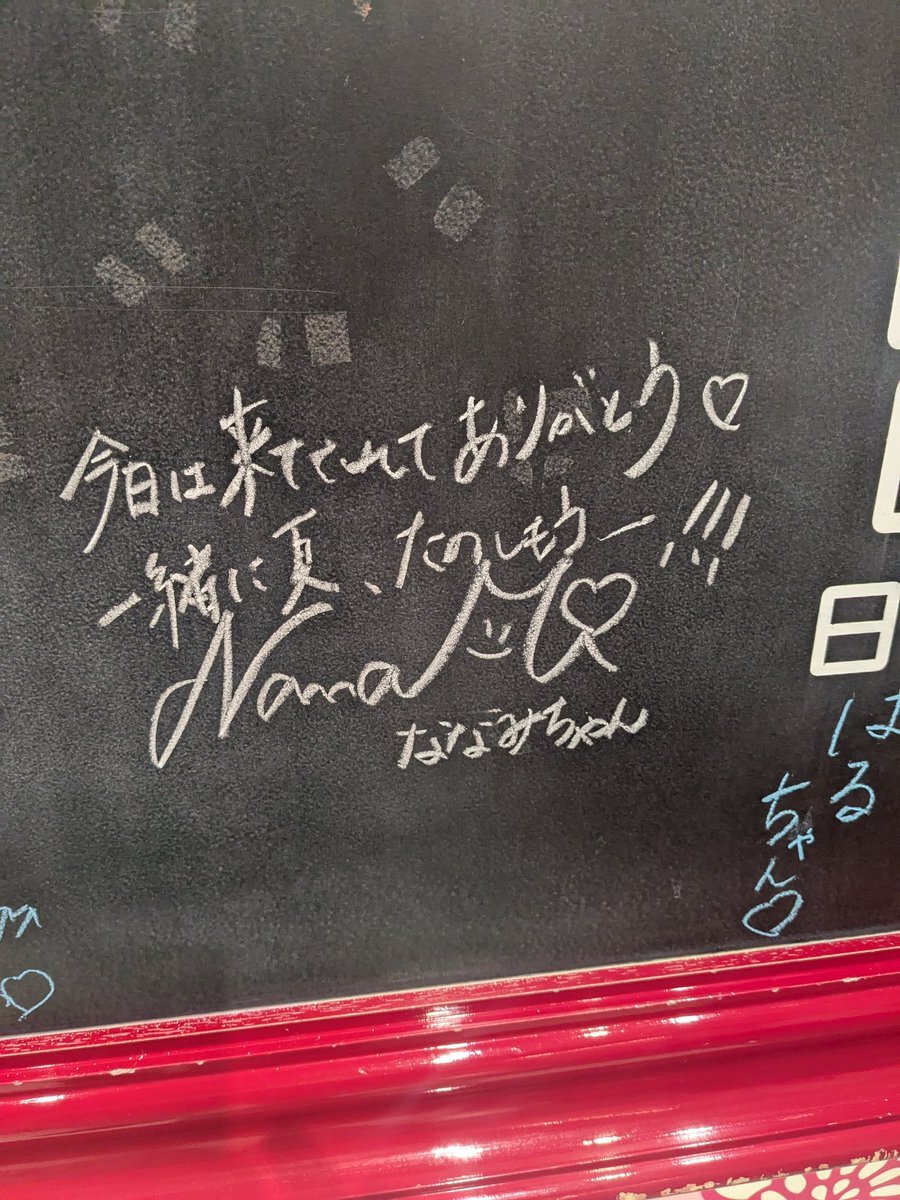 今日は来てくれてありがとう♡
一緒に夏、たのしもうー!!!
Nana
ななみちゃん
日
はる
ちゃん♡